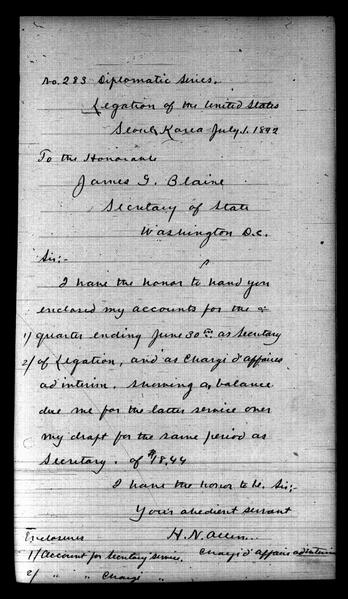 No. 283 Diplomatic Series.
Legation of the United States
Seoul Korea July 1. 1892
To the Honorable
James G. Blaine
Secretary of State
Washington D.C.
Sir:-
I have the honor to hand you
enclosed my accounts for the
1/ quarter ending June 30th as Secretary
2/ of Legation, and as Chargé d'affaires
ad interim. Showing a balance
due me for the latter service over
my draft for the same period as
Secretary. of $78.44
I have the honor to be. Sir;-
Your obedient servant
H. N. Allen
Enclosures Chargé d'affaires ad interim
1/ Account for Secretary service.
2/ " " Chargé "